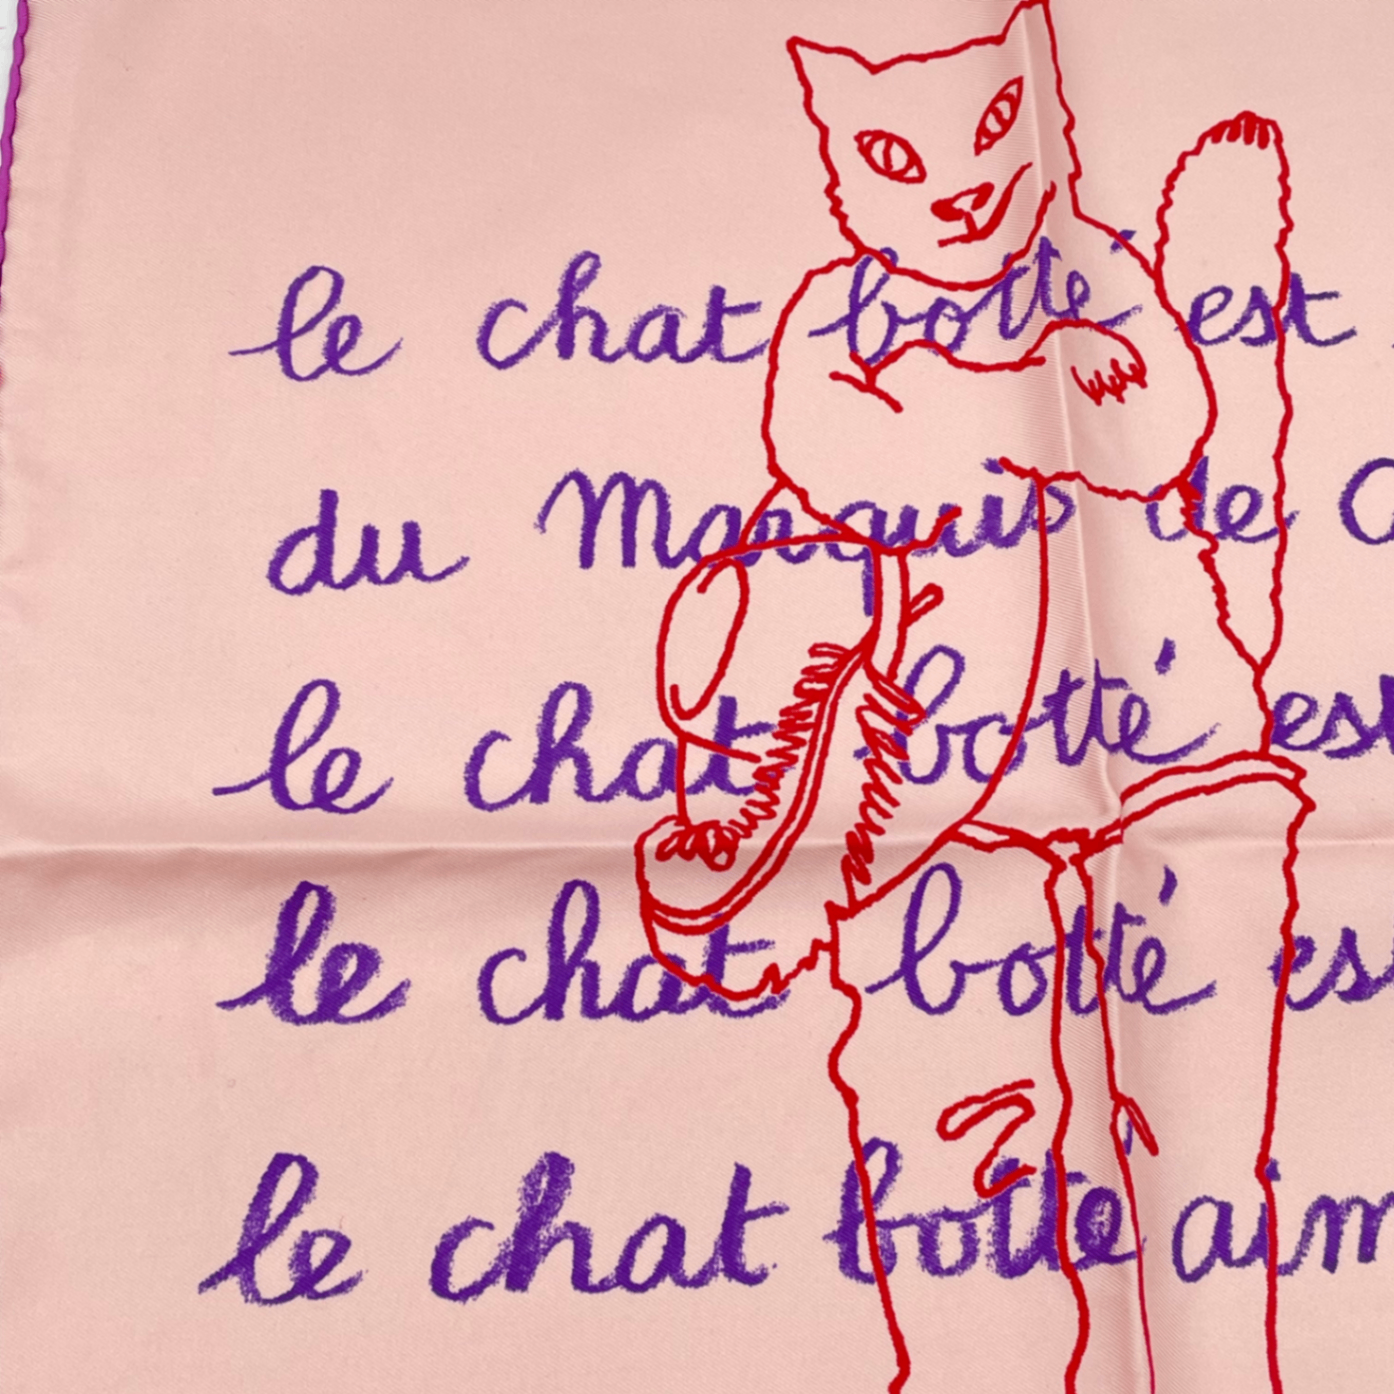 le chat botté est
du Marquis de C
le chat botté est
le chat botté es
le chat botté aim